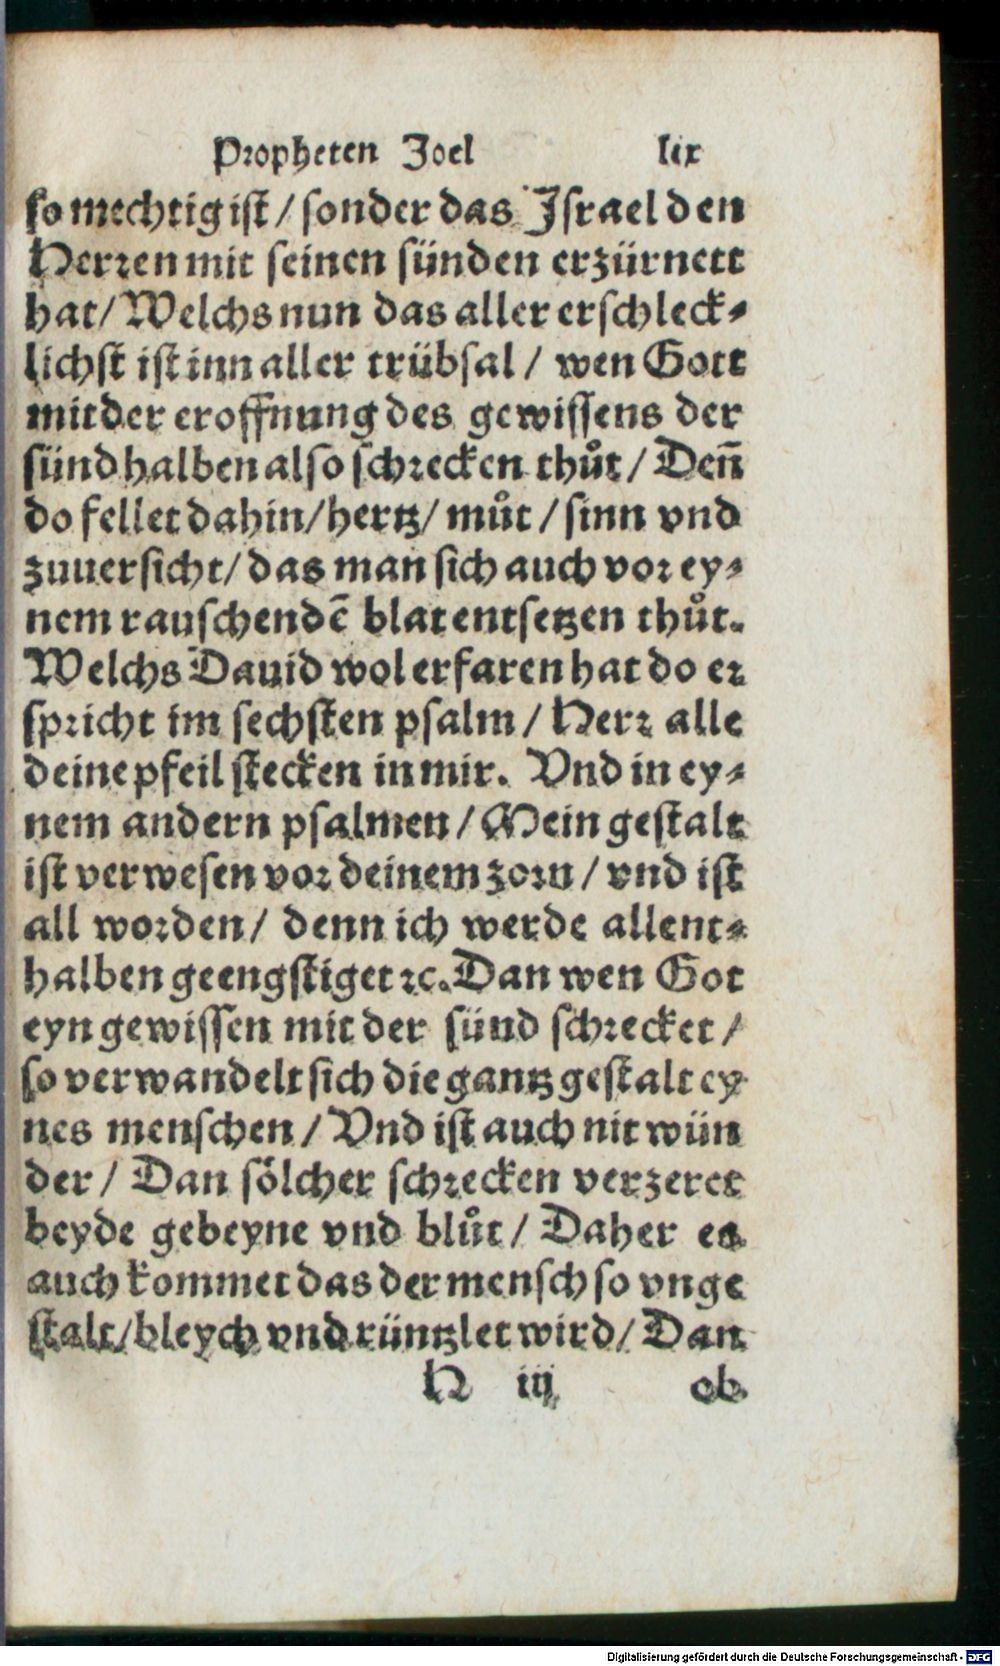 Propheten Joel lix
so mechtig ist / sonder das Jsrael den
Herren mit seinen sünden erzürnett
hat / Welchs nun das aller erschleck⸗
lichst ist inn aller trübsal / wen Gott
mit der eroffnung des gewissens der
sünd halben also schrecken thůt / Deñ
do fellet dahin / hertz / můt / sinn vnd
zuuersicht / das man sich auch vor ey⸗
nem rauschendē blat entsetzen thůt.
Welchs Dauid wol erfaren hat do er
spricht im sechsten psalm / Herr alle
deine pfeil stecken in mir. Vnd in ey⸗
nem andern psalmen / Mein gestalt
ist verwesen vor deinem zorn / vnd ist
all worden / denn ich werde allent⸗
halben geengstiget ꝛc. Dan wen Got
eyn gewissen mit der sünd schrecket /
so verwandelt sich die gantz gestalt ey
nes menschen / Vnd ist auch nit wün
der / Dan sölcher schrecken verzeret
beyde gebeyne vnd blůt / Daher es
auch kommet das der mensch so vnge
stalt / bleych vnd rüntzlet wird / Dan
H iij ob
Digitalisierung gefördert durch die Deutsche Forschungsgemeinschaft - DFG